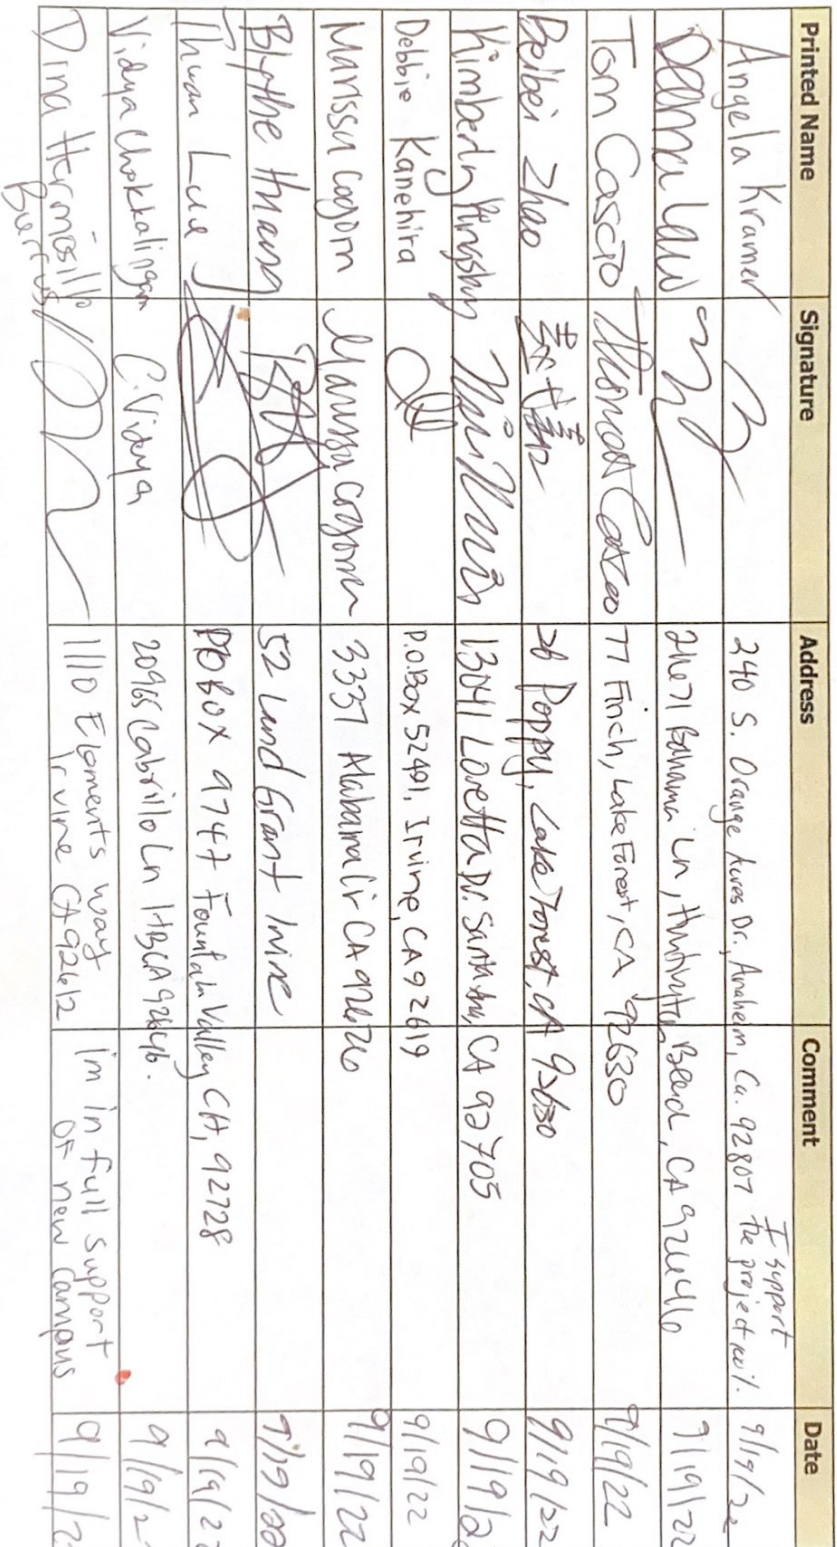 Printed Name Signature Address Comment Date
Angela Kramer 240 S. Orange Acres Dr., Anaheim, Ca. 92807 I support the project 100%. 9/19/22
21671 Bahama Ln, Huntington Beach, CA 92646 9/19/22
Tom Cascio Thomas Cascio 77 Finch, Lake Forest, CA 92630 9/19/22
Beibei Zhao 26 Poppy, Lake Forest, CA 92630 9/19/22
Kimberly Kingsbury 13041 Loretta Dr. Santa Ana, CA 92705 9/19/2
Debbie Kanehira P.O. Box 52491, Irvine, CA 92619 9/19/22
Marissa Cogorn Marissa Cogorn 3337 Alabama Cir CA 92626 9/19/22
Blythe Huang 52 Land Grant Irvine 9/19/22
Thuan Luu PO BOX 9747 Fountain Valley CA, 92728 9/19/2
Vidya Chokkalingam C. Vidya 20965 Cabrillo Ln HB CA 92646. 9/19/2
Dina Hermosillo Burrus 1110 Elements Way
Irvine CA 92612 I'm in full support
of new campus 9/19/2